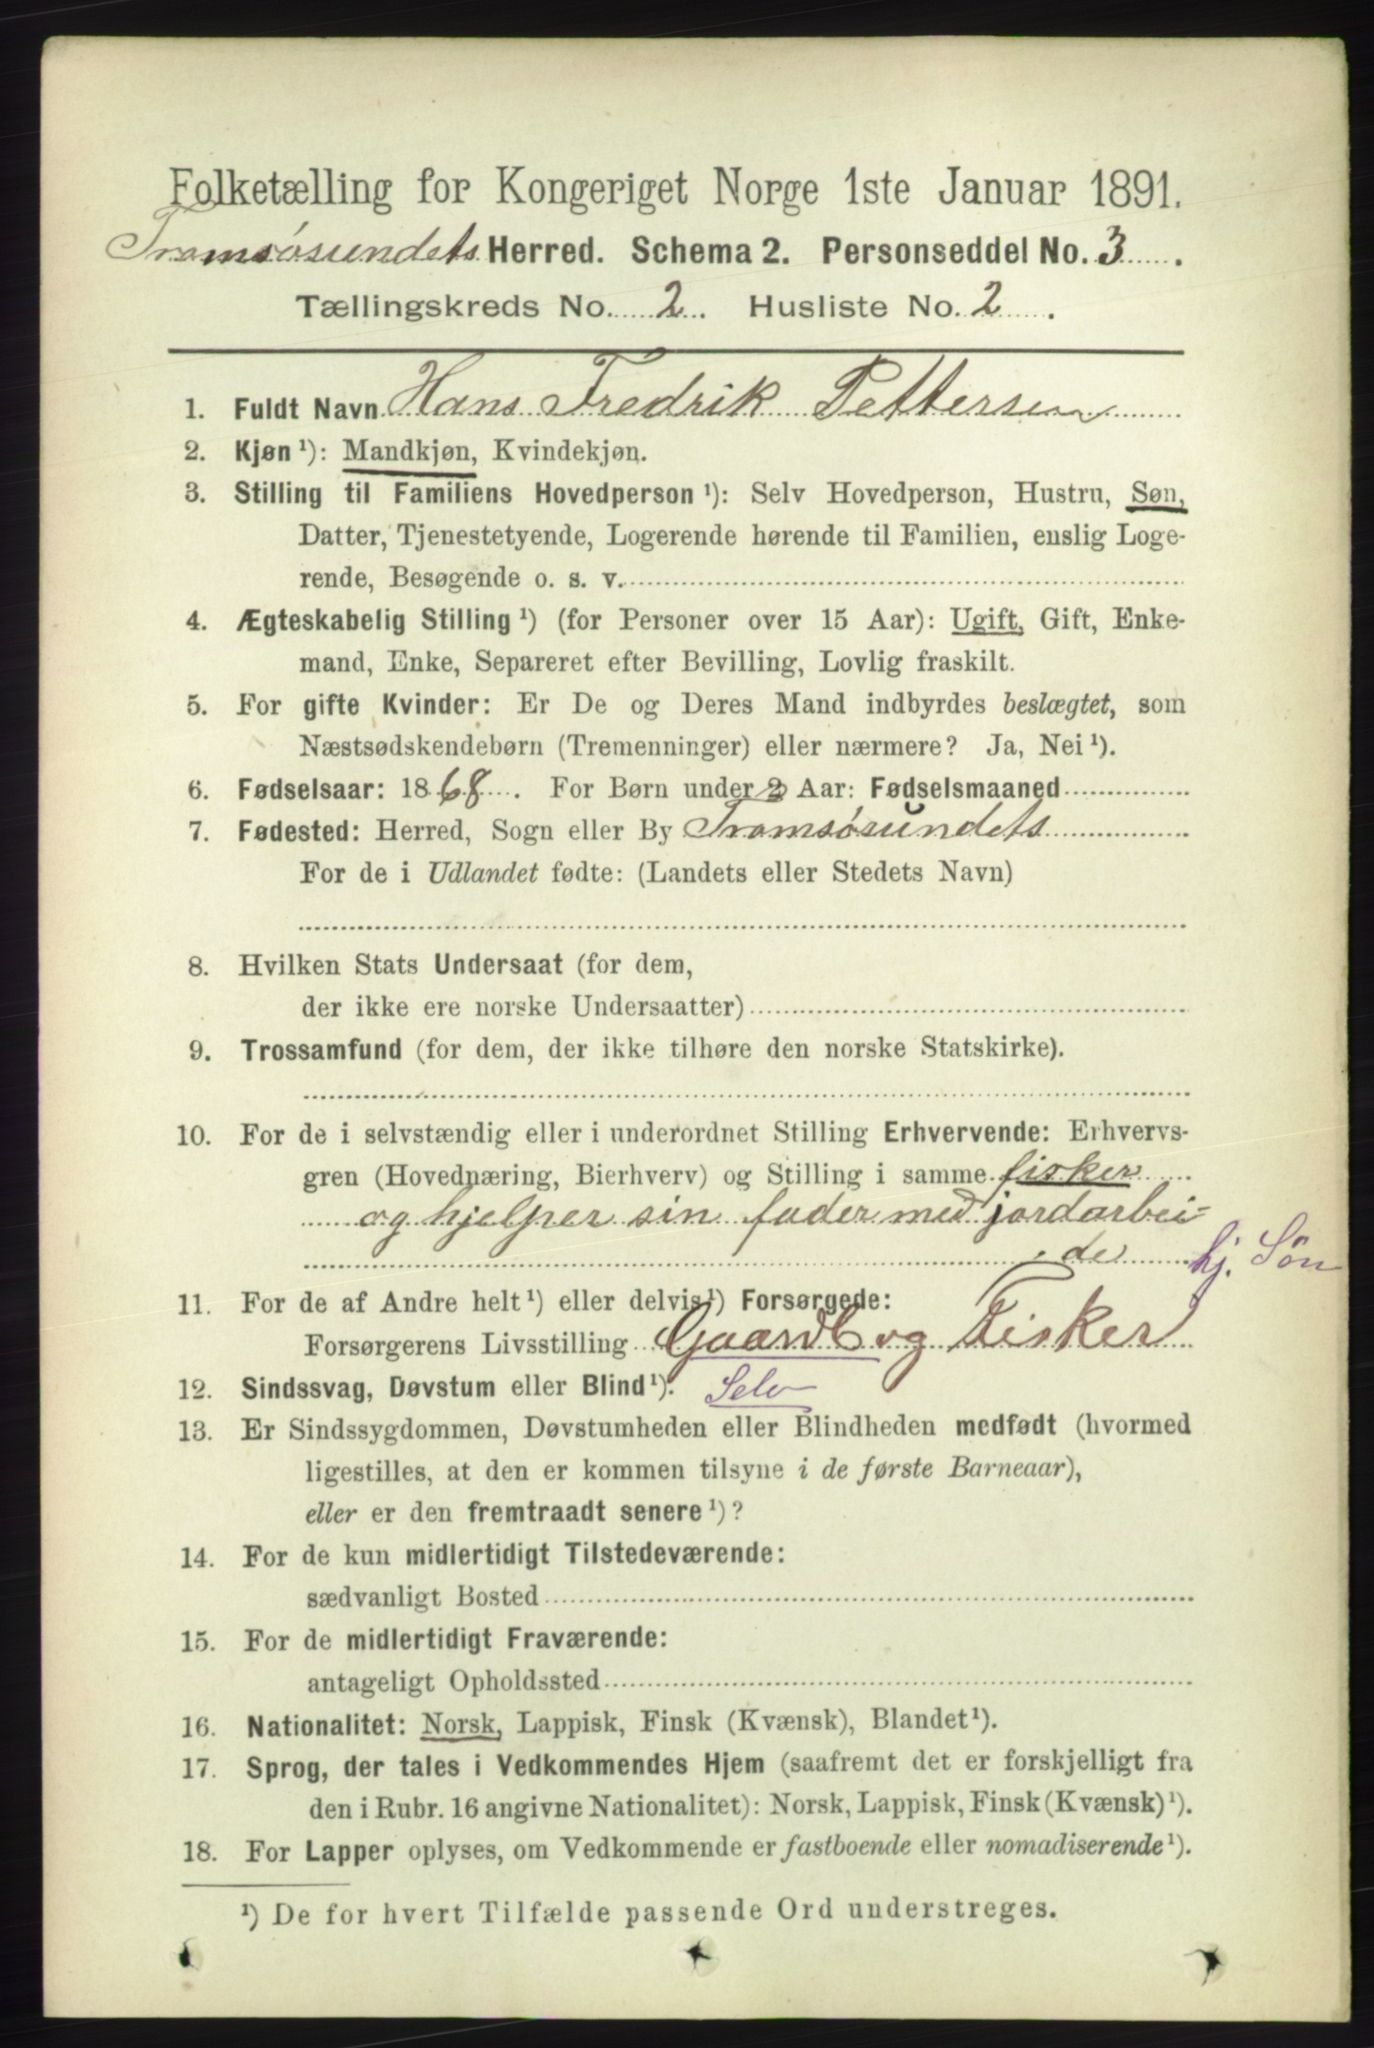 Folketælling for Kongeriget Norge 1ste Januar 1891.
Tromsøsundets Herred. Schema 2. Personseddel No. 3.
Tællingskreds No. 2. Husliste No. 2.
1. Fuldt Navn Hans Fredrik Pettersen
2. Kjøn ¹): Mandkjøn, Kvindekjøn.
3. Stilling til Familiens Hovedperson ¹): Selv Hovedperson, Hustru, Søn,
Datter, Tjenestetyende, Logerende hørende til Familien, enslig Loge-
rende, Besøgende o. s. v.
4. Ægteskabelig Stilling ¹) (for Personer over 15 Aar): Ugift, Gift, Enke-
mand, Enke, Separeret efter Bevilling, Lovlig fraskilt.
5. For gifte Kvinder: Er De og Deres Mand indbyrdes beslægtet, som
Næstsødskendebørn (Tremenninger) eller nærmere? Ja, Nei ¹).
6. Fødselsaar: 1868. For Børn under 2 Aar: Fødselsmaaned
7. Fødested: Herred, Sogn eller By Tromsøsundets
For de i Udlandet fødte: (Landets eller Stedets Navn)
8. Hvilken Stats Undersaat (for dem,
der ikke ere norske Undersaatter)
9. Trossamfund (for dem, der ikke tilhøre den norske Statskirke).
10. For de i selvstændig eller i underordnet Stilling Erhvervende: Erhvervs-
gren (Hovednæring, Bierhverv) og Stilling i samme fisker
og hjelper sin fader med jordarbei=
de hj. Sön
11. For de af Andre helt ¹) eller delvis ¹) Forsørgede:
Forsørgerens Livsstilling Gaardb og Fisker
12. Sindssvag, Døvstum eller Blind ¹). Selv
13. Er Sindssygdommen, Døvstumheden eller Blindheden medfødt (hvormed
ligestilles, at den er kommen tilsyne i de første Barneaar),
eller er den fremtraadt senere ¹)?
14. For de kun midlertidigt Tilstedeværende:
sædvanligt Bosted
15. For de midlertidigt Fraværende:
antageligt Opholdssted
16. Nationalitet: Norsk, Lappisk, Finsk (Kvænsk), Blandet ¹).
17. Sprog, der tales i Vedkommendes Hjem (saafremt det er forskjelligt fra
den i Rubr. 16 angivne Nationalitet): Norsk, Lappisk, Finsk (Kvænsk) ¹).
18. For Lapper oplyses, om Vedkommende er fastboende eller nomadiserende ¹).
¹) De for hvert Tilfælde passende Ord understreges.